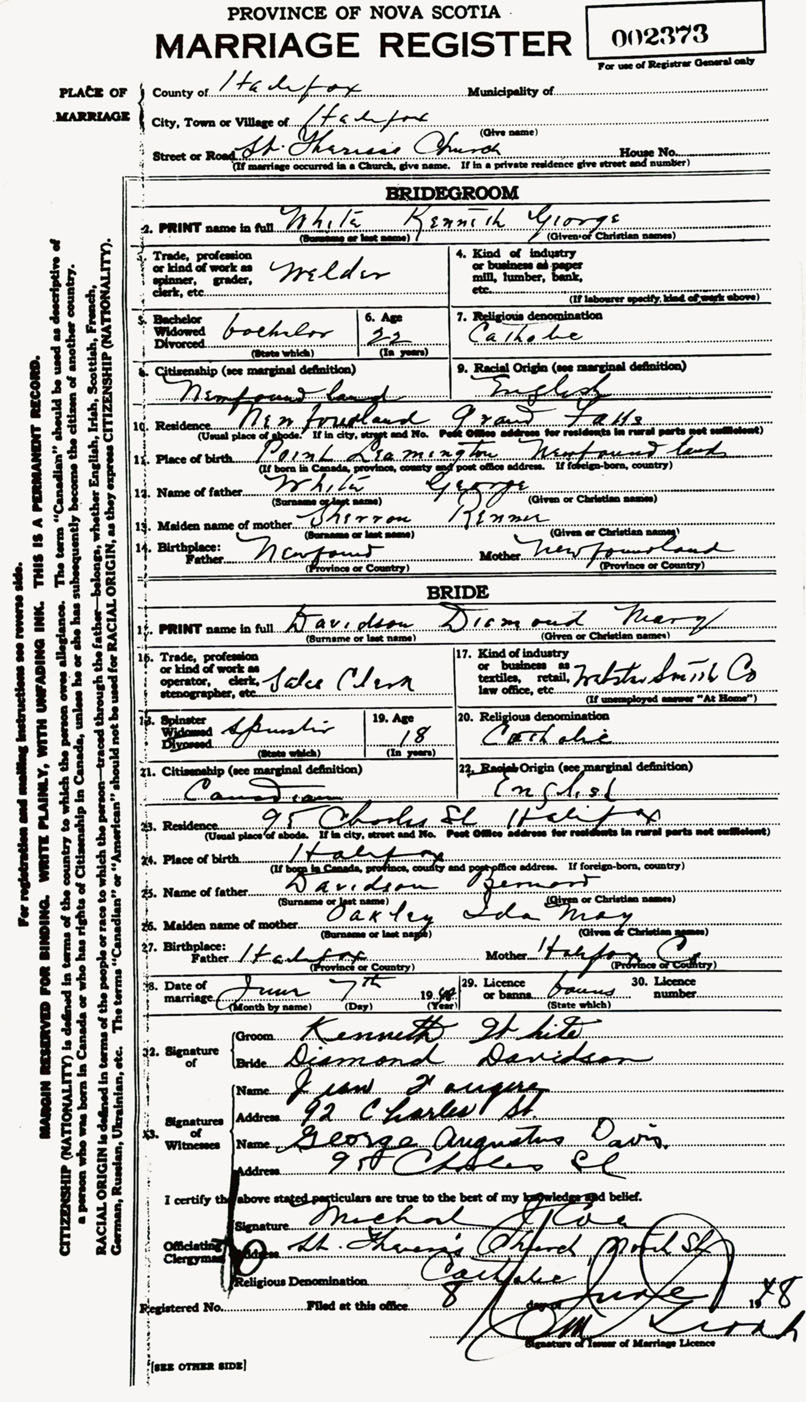 PROVINCE OF NOVA SCOTIA
MARRIAGE REGISTER
002373
For use of Registrar General only
PLACE OF MARRIAGE
County of Halifax Municipality of
City, Town or Village of Halifax
(Give name)
Street or Road St. Theresa's Church House No.
(If marriage occurred in a Church, give name. If in a private residence give street and number)
BRIDEGROOM
2. PRINT name in full White Kenneth George
(Surname or last name) (Given or Christian names)
3. Trade, profession or kind of work as spinner, grader, clerk, etc. Welder
4. Kind of industry or business as paper mill, lumber, bank, etc.
(If labourer specify, kind of work above)
5. Bachelor Widowed Divorced bachelor
(State which)
6. Age 22
(In years)
7. Religious denomination
Catholic
8. Citizenship (see marginal definition)
Newfoundland
9. Racial Origin (see marginal definition)
English
10. Residence Newfoundland Grand Falls
(Usual place of abode. If in city, street and No. Post Office address for residents in rural parts not sufficient)
11. Place of birth Point Leamington Newfoundland
(If born in Canada, province, county and post office address. If foreign-born, country)
12. Name of father White George
(Surname or last name) (Given or Christian names)
13. Maiden name of mother
(Surname or last name) (Given or Christian names)
14. Birthplace: Father Newfound Mother Newfoundland
(Province or Country) (Province or Country)
BRIDE
15. PRINT name in full Davidson Diamond Mary
(Surname or last name) (Given or Christian names)
16. Trade, profession or kind of work as operator, clerk, stenographer, etc. Sales Clerk
17. Kind of industry or business as textiles, retail, law office, etc. Webster Smith Co
(If unemployed answer "At Home")
18. Spinster Widowed Divorced Spinster
(State which)
19. Age 18
(In years)
20. Religious denomination
Catholic
21. Citizenship (see marginal definition)
Canadian
22. Racial Origin (see marginal definition)
English
23. Residence 95 Charles St Halifax
(Usual place of abode. If in city, street and No. Post Office address for residents in rural parts not sufficient)
24. Place of birth Halifax
(If born in Canada, province, county and post office address. If foreign-born, country)
25. Name of father Davidson Bernard
(Surname or last name) (Given or Christian names)
26. Maiden name of mother Oakley Ida May
(Surname or last name) (Given or Christian names)
27. Birthplace: Father Halifax Mother Halifax Co
(Province or Country) (Province or Country)
28. Date of marriage June 7th 1948
(Month by name) (Day) (Year)
29. Licence or banns banns
(State which)
30. Licence number
32. Signature of
Groom Kenneth White
Bride Diamond Davidson
33. Signatures of Witnesses
Name Jean Fougere
Address 92 Charles St.
Name George Augustus Davis
Address Charles St
I certify the above stated particulars are true to the best of my knowledge and belief.
Officiating Clergyman
Signature Michael
Address St. Theresa's Church, North St
Religious Denomination Catholic
Registered No. Filed at this office 8 day of June 1948
Signature of Issuer of Marriage Licence
[SEE OTHER SIDE]
For registration and mailing instructions see reverse side.
MARGIN RESERVED FOR BINDING. WRITE PLAINLY, WITH UNFADING INK. THIS IS A PERMANENT RECORD.
CITIZENSHIP (NATIONALITY) is defined in terms of the country to which the person owes allegiance. The term "Canadian" should be used as descriptive of
a person who was born in Canada or who has rights of Citizenship in Canada, unless he or she has subsequently become the citizen of another country.
RACIAL ORIGIN is defined in terms of the people or race to which the person—traced through the father—belongs, whether English, Irish, Scottish, French,
German, Russian, Ukrainian, etc. The terms "Canadian" or "American" should not be used for RACIAL ORIGIN, as they express CITIZENSHIP (NATIONALITY).